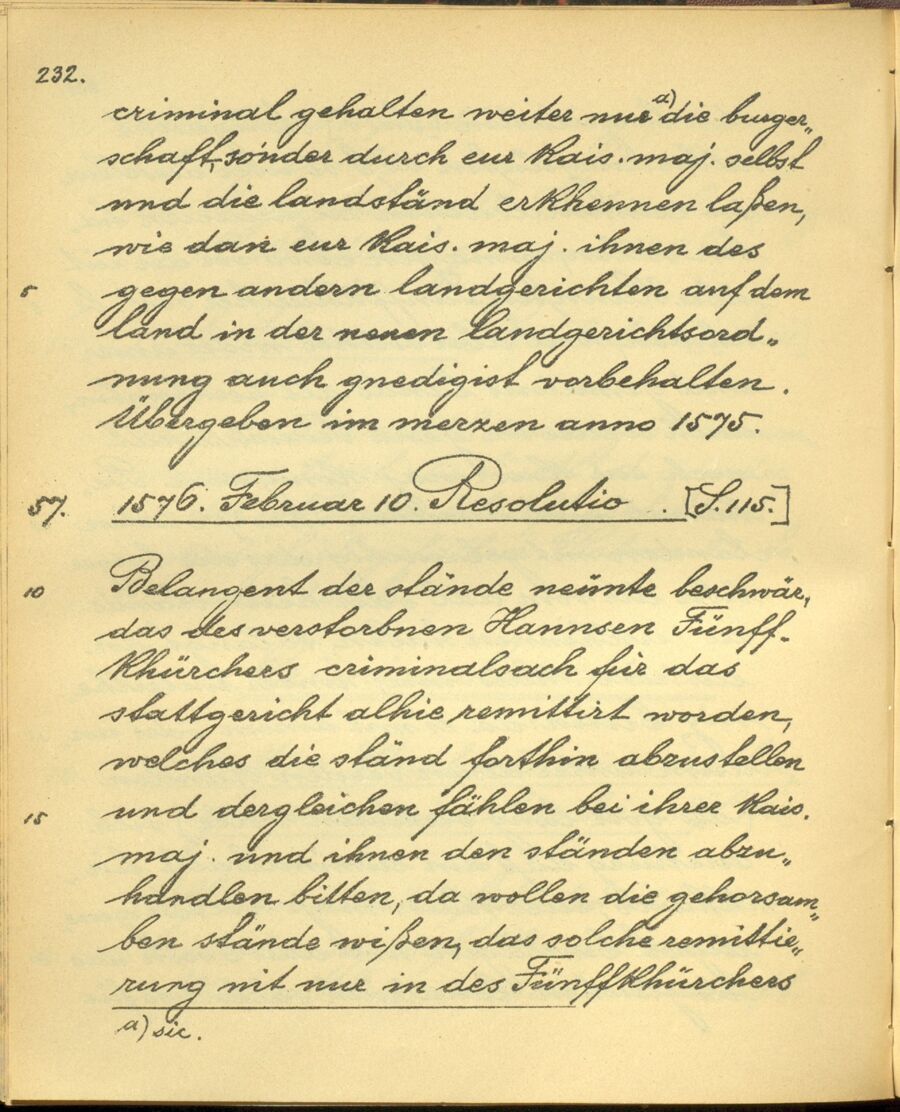 232.
criminal gehalten weiter nur a) die burger„
schaft, sonder durch eur kais. maj. selbst
und die landständ erkhennen laßen,
wie dan eur kais. maj. ihnen des
5 gegen andern landgerichten auf dem
land in der neuen landgerichtsord„
nung auch gnedigist vorbehalten.
Übergeben im merzen anno 1575.
57. 1576. Februar 10. Resolutio. [S. 115.]
10 Belangent der stände neünte beschwär,
das des verstorbnen Hannsen Fünff-
khürchers criminalsach für das
stattgericht alhie remittirt worden,
welches die ständ forthin abzustellen
15 und dergleichen fählen bei ihrer kais.
maj. und ihnen den ständen abzu„
handlen bitten, da wollen die gehorsam„
ben stände wißen, das solche remittie„
rung nit nur in des Fünffkhürchers
a) sic.